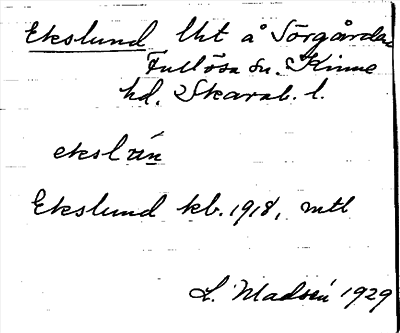 Ekslund lht å Sörgården
Fullösa sn. Kinne
hd. Skarab. l.
Ekslund kb. 1918, mtl
L. Madsén 1929